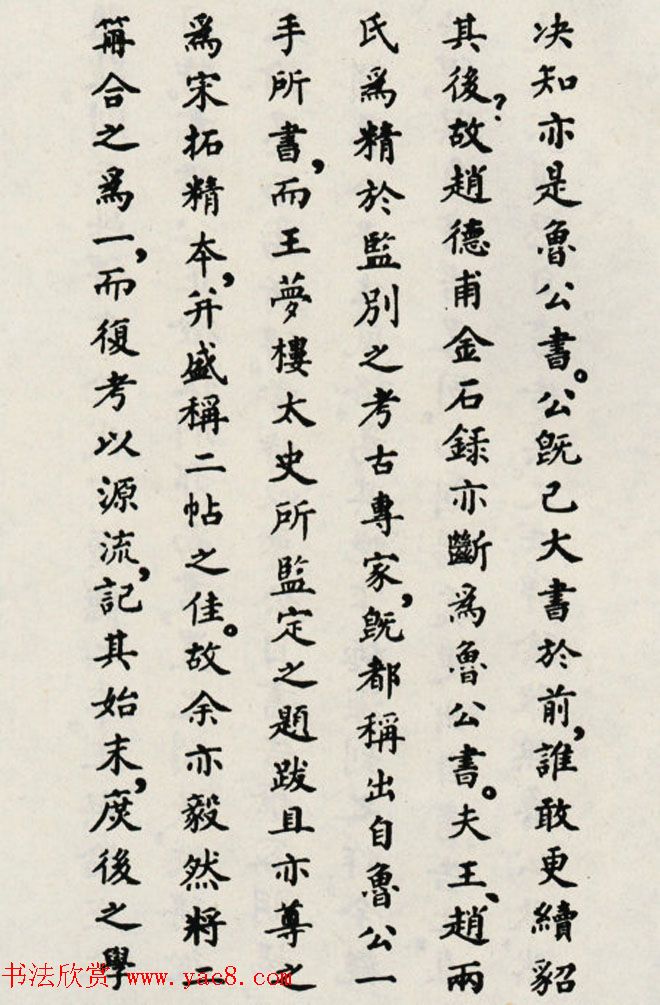 决知亦是魯公書。公既已大書於前,誰敢更續貂
其後?故趙德甫金石録亦斷爲魯公書。夫王、趙兩
氏爲精於監別之考古專家,既都稱出自魯公一
手所書,而王夢樓太史所監定之題跋且亦尊之
爲宋拓精本,并盛稱二帖之佳。故余亦毅然將二
册合之爲一,而復考以源流,記其始末,庶後之學
书法欣赏 www.yac8.com